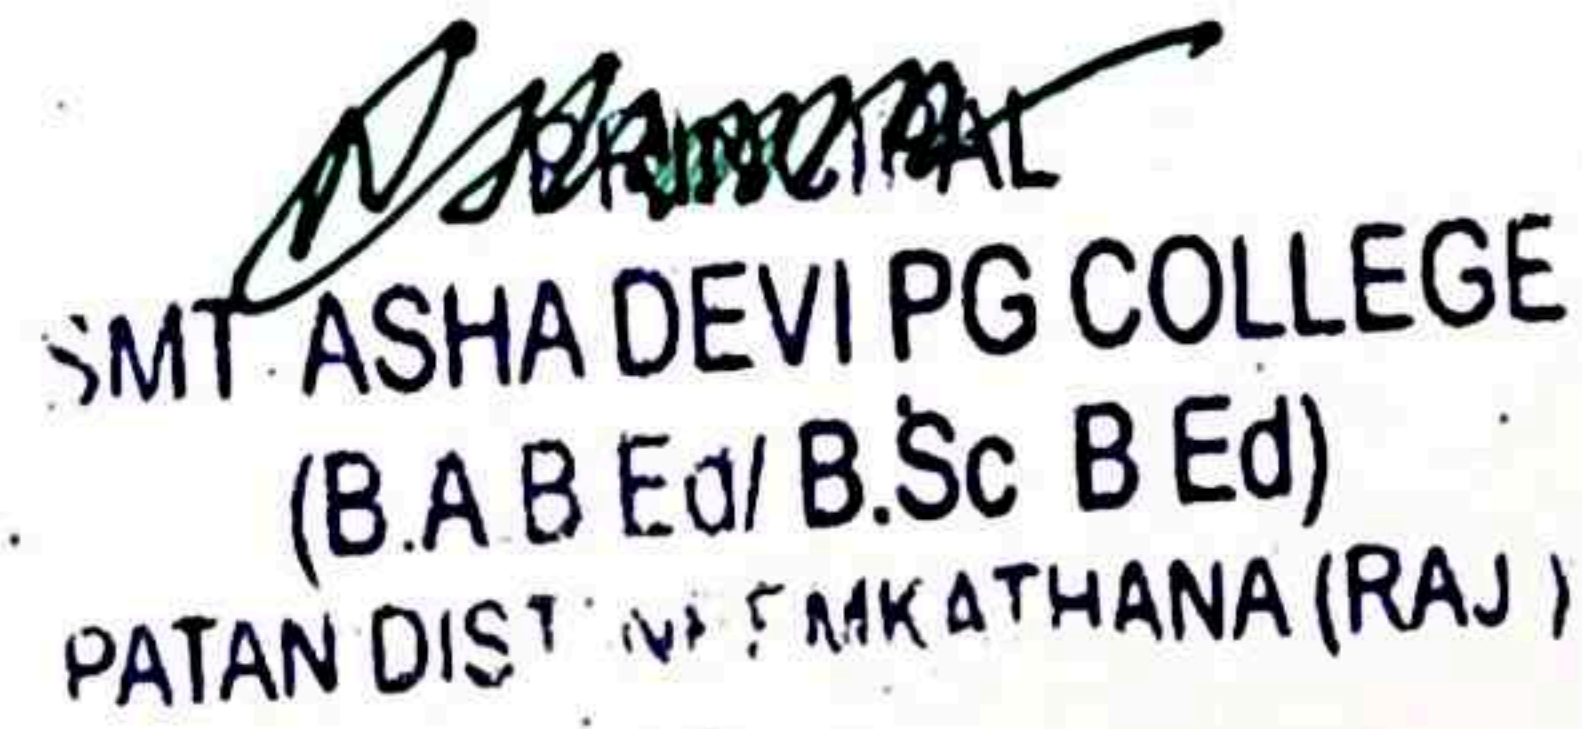 PRINCIPAL
SMT ASHA DEVI PG COLLEGE
(B.A B Ed/ B.Sc B Ed)
PATAN DIST KATHANA (RAJ )